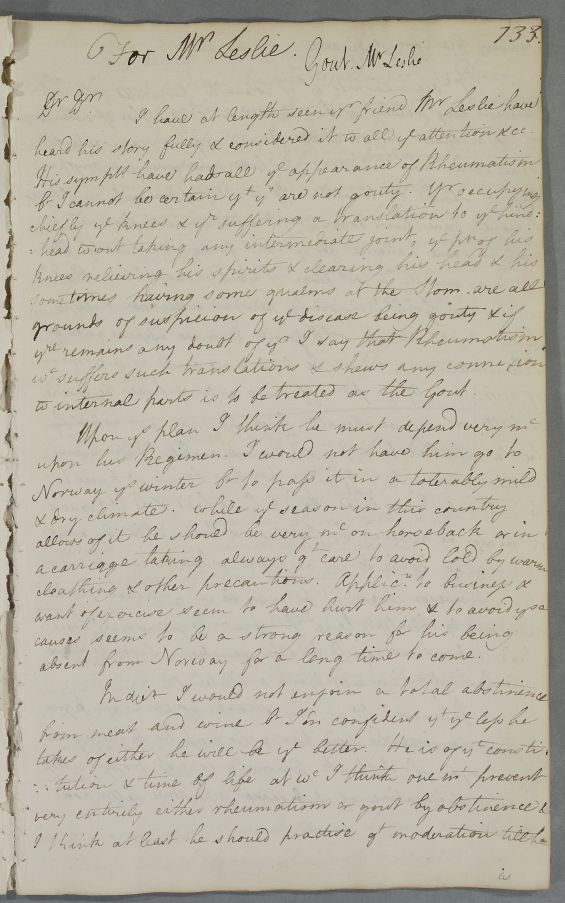 133.
For Mr Leslie. Gout. Mr Leslie
Dr Dr
I have at length seen yr friend Mr Leslie have
heard his story fully & considered it wt all ye attention &cc.
His sympts have had all ye appearance of Rheumatism
bt I cannot be certain yt yy are not gouty. Yr occupying
chiefly ye knees & yr suffering a translation to ye fore:
:head wtout taking any intermediate joint, ye pn of his
knees relieving his spirits & clearing his head & his
sometimes having some qualms at the Stom. are all
grounds of suspicion of ye disease being gouty & if
yre remains any doubt of ys I say that Rheumatism
wc suffers such translations & shews any connexion
to internal parts is to be treated as the Gout.
Upon ys plan I think he must depend very mc
upon his Regimen. I would not have him go to
Norway ys winter bt to pass it in a tolerably mild
& dry climate. While ye season in this country
allows of it he should be very mc on horseback or in
a carriage taking always gt care to avoid Cold by warm
cloathing & other precautions. Applicn to business &
want of exercise seem to have hurt him & to avoid ys
causes seems to be a strong reason for his being
absent from Norway for a long time to come.
In diet I would not enjoin a total abstinence
from meat and wine bt I'm confident yt ye less he
takes of either he will be ye better. He is of yt consti:
:tution & time of life at wc I think one mt prevent
very entirely either rheumatism or gout by abstinence &
I think at least he should practise gt moderation till he
is